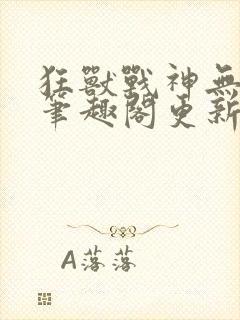 狂獸戰神無
筆趣閣更新
A落落